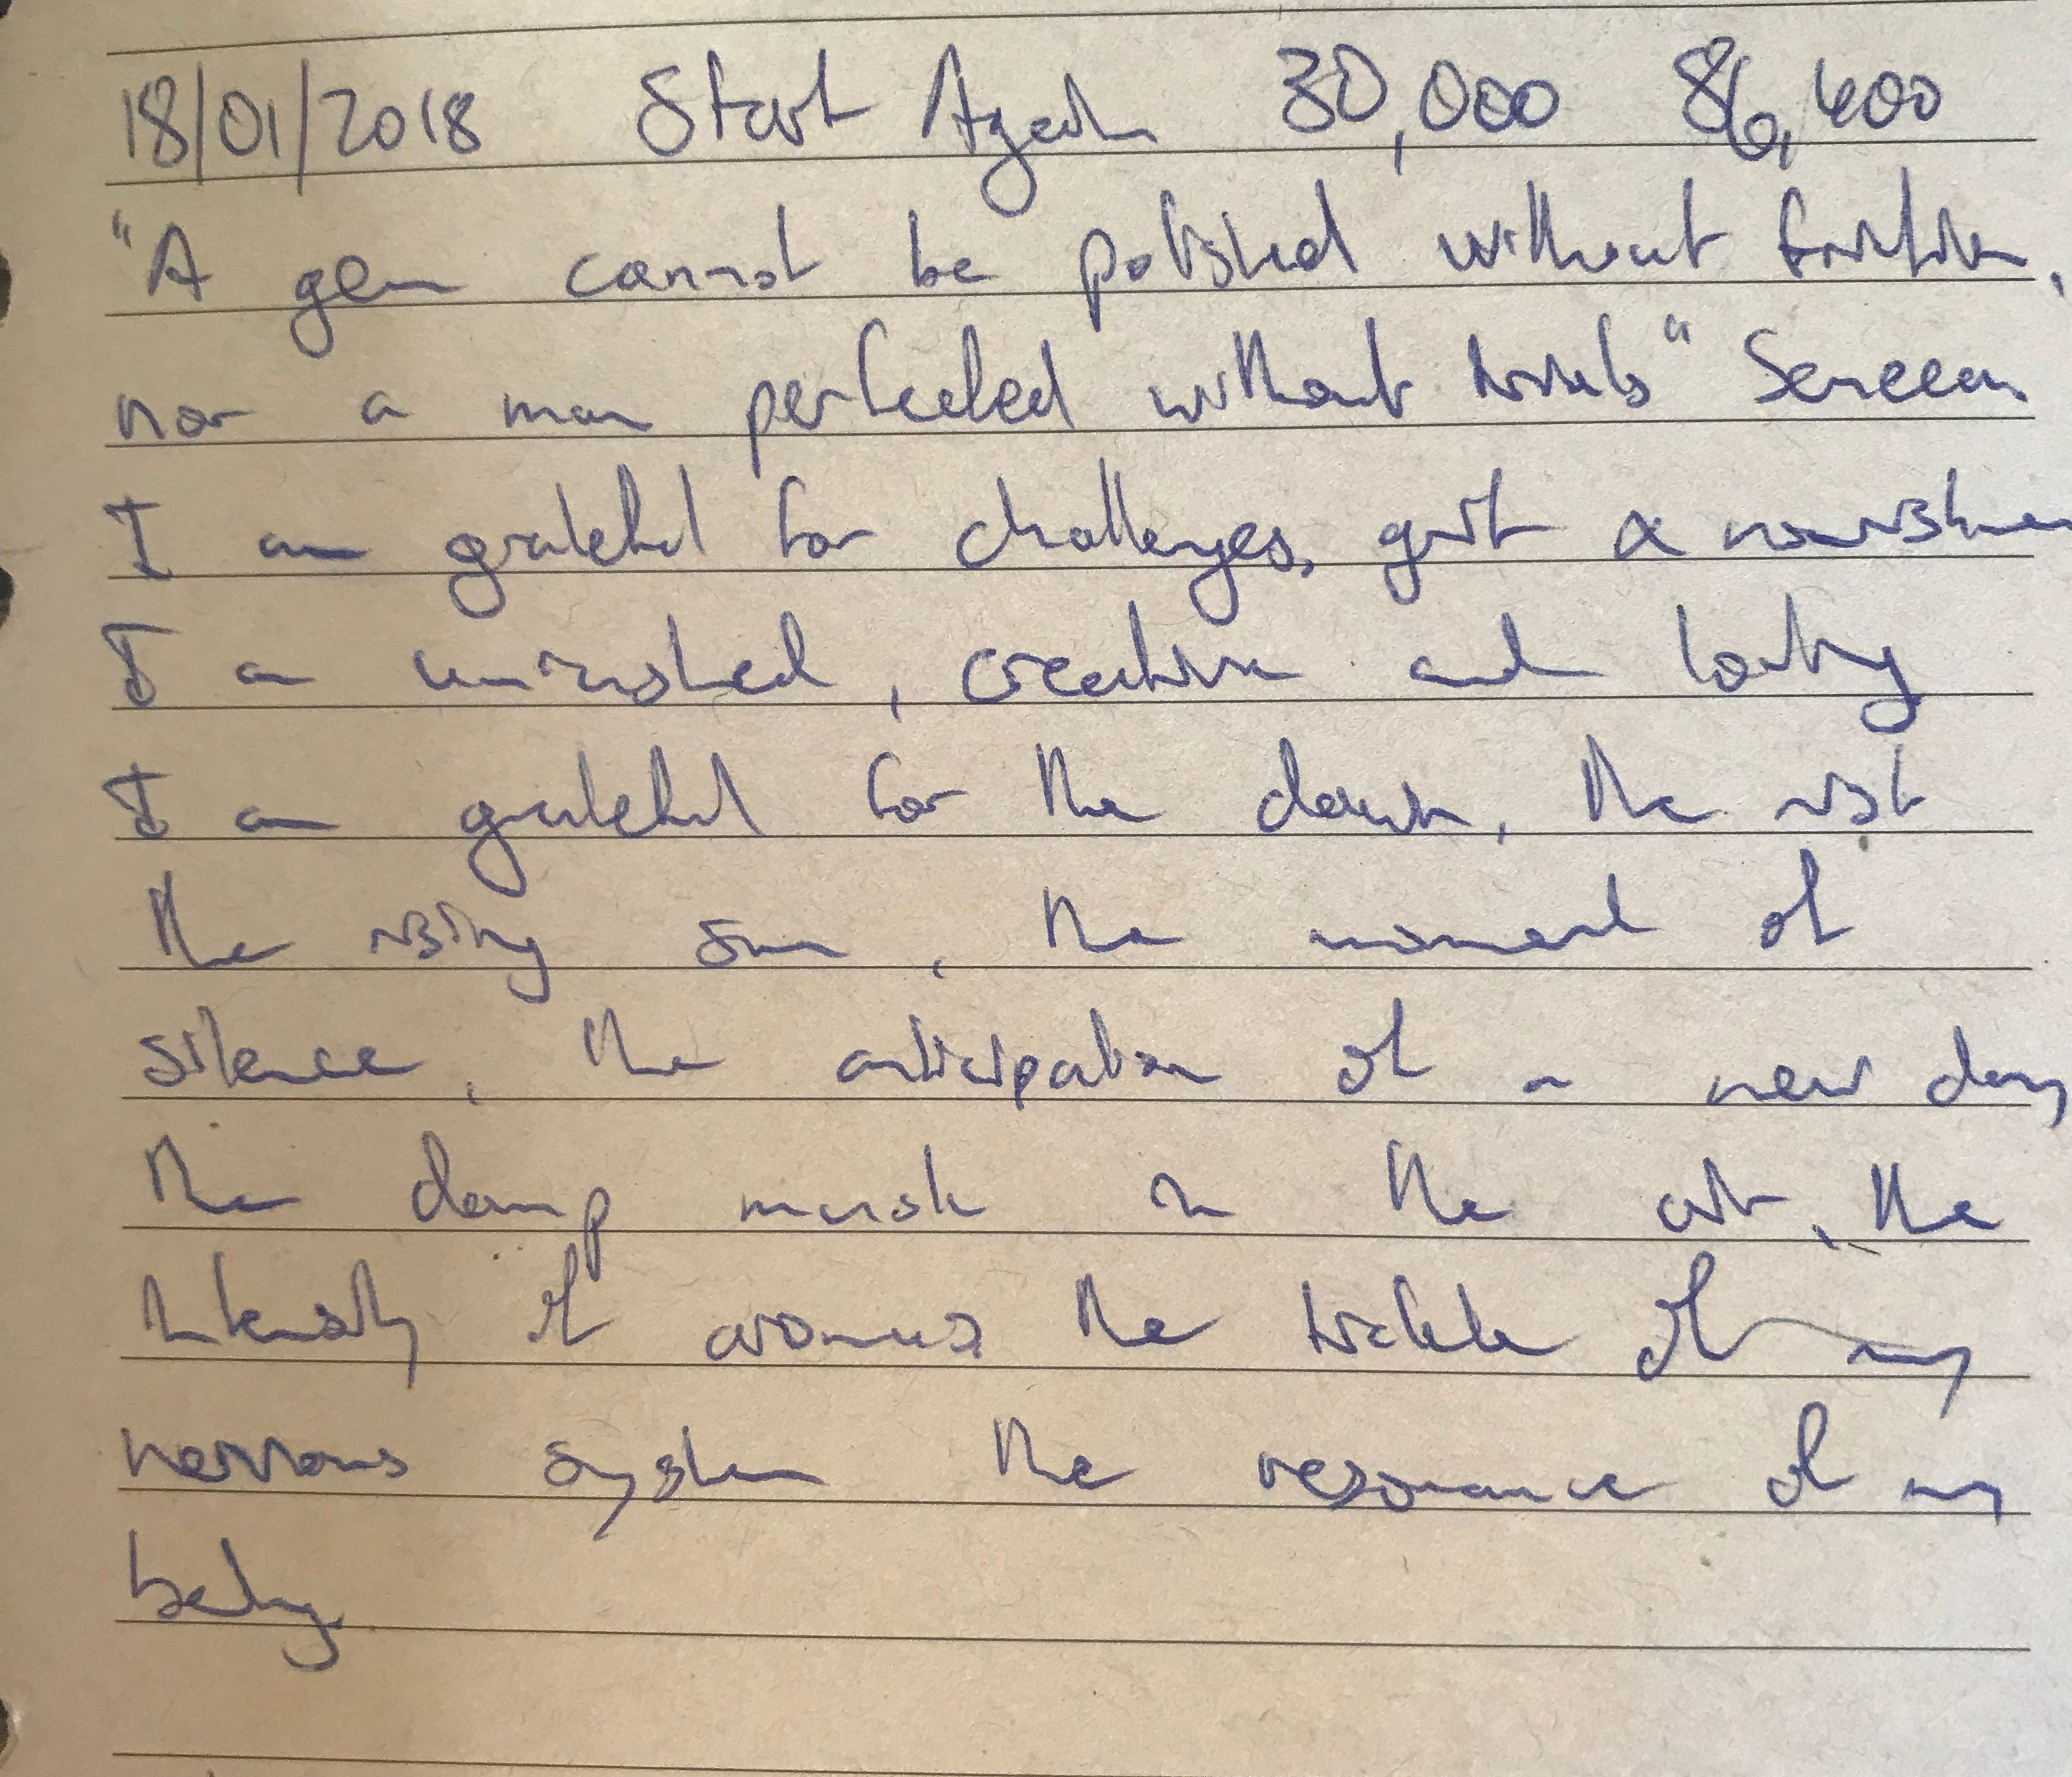 18/01/2018 Start Again 30,000 86,400
"A gem cannot be polished without friction,
nor a man perfected without trials" Seneca
I am grateful for challenges, grit &
I am , creative and loving
I am grateful for the dawn, the
the rising sun, the moment of
silence, the anticipation of a new day
the damp musk in the air, the
intensity of aromas, the tickle of my
nervous system the resonance of my
being.